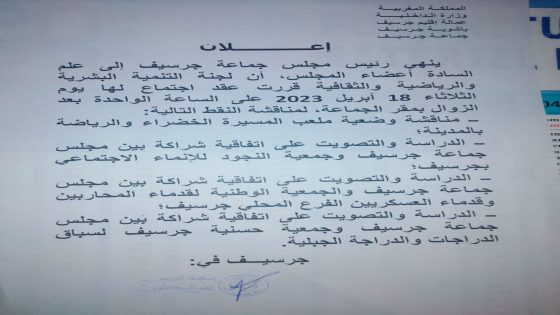 المملكة المغربية
وزارة الداخلية
عمالة إقليم جرسيف
باشوية جرسيف
جماعة جرسيف
إعــلان
ينهي رئيس مجلس جماعة جرسيف إلى علم
السادة أعضاء المجلس، أن لجنة التنمية البشرية
والرياضية والثقافية قررت عقد اجتماع لها يوم
الثلاثاء 18 أبريل 2023 على الساعة الواحدة بعد
الزوال بمقر الجماعة، لمناقشة النقط التالية:
– مناقشة وضعية ملعب المسيرة الخضراء والرياضة
بالمدينة؛
– الدراسة والتصويت على اتفاقية شراكة بين مجلس
جماعة جرسيف وجمعية النجود للإنماء الاجتماعي
بجرسيف؛
– الدراسة والتصويت على اتفاقية شراكة بين مجلس
جماعة جرسيف والجمعية الوطنية لقدماء المحاربين
وقدماء العسكريين الفرع المحلي جرسيف؛
– الدراسة والتصويت على اتفاقية شراكة بين مجلس
جماعة جرسيف وجمعية حسنية جرسيف لسباق
الدراجات والدراجة الجبلية.
جرسيف في:
04